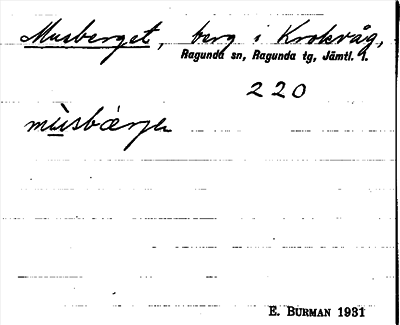 Musberget, berg i Krokvåg,
Ragunda sn, Ragunda tg, Jämtl. l.
220
mùsbárje
E. BURMAN 1931